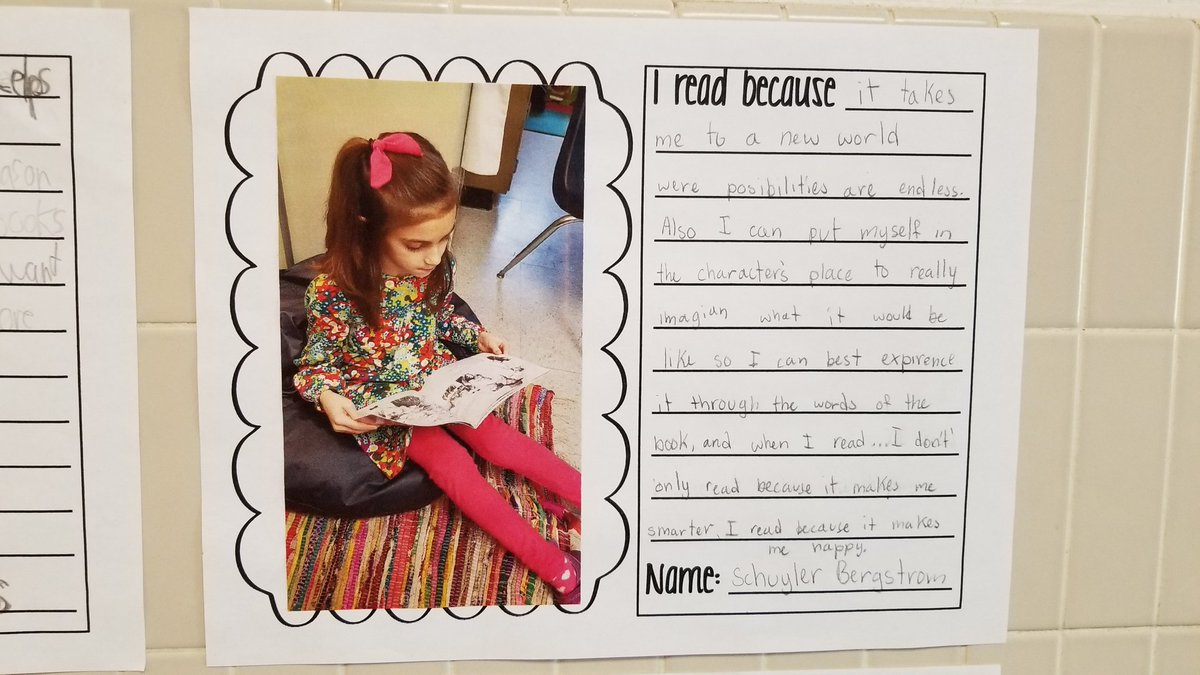 elps
ason
books
want
ore
s
I read because it takes
me to a new world
were posibilities are endless.
Also I can put myself in
the character's place to really
imagian what it would be
like so I can best expirence
it through the words of the
book, and when I read...I don't
only read because it makes me
smarter, I read because it makes
me happy.
Name: Schuyler Bergstrom